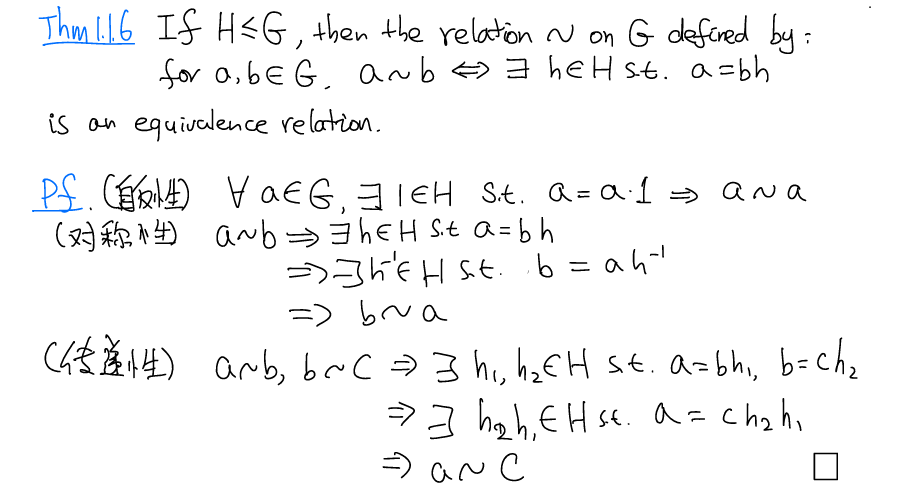 Thm 1.1.6 If H≤G, then the relation ~ on G defined by:
for a,b∈G. a~b ⇔ ∃ h∈H s.t. a=bh
is an equivalence relation.
Pf. (自反性) ∀ a∈G, ∃ 1∈H s.t. a=a·1 ⇒ a~a
(对称性) a~b ⇒ ∃h∈H s.t a=bh
⇒∃h⁻¹∈H s.t. b = ah⁻¹
⇒ b~a
(传递性) a~b, b~c ⇒ ∃ h₁,h₂∈H s.t. a=bh₁, b=ch₂
⇒ ∃ h₂h₁∈H s.t. a = ch₂h₁
⇒ a~c □